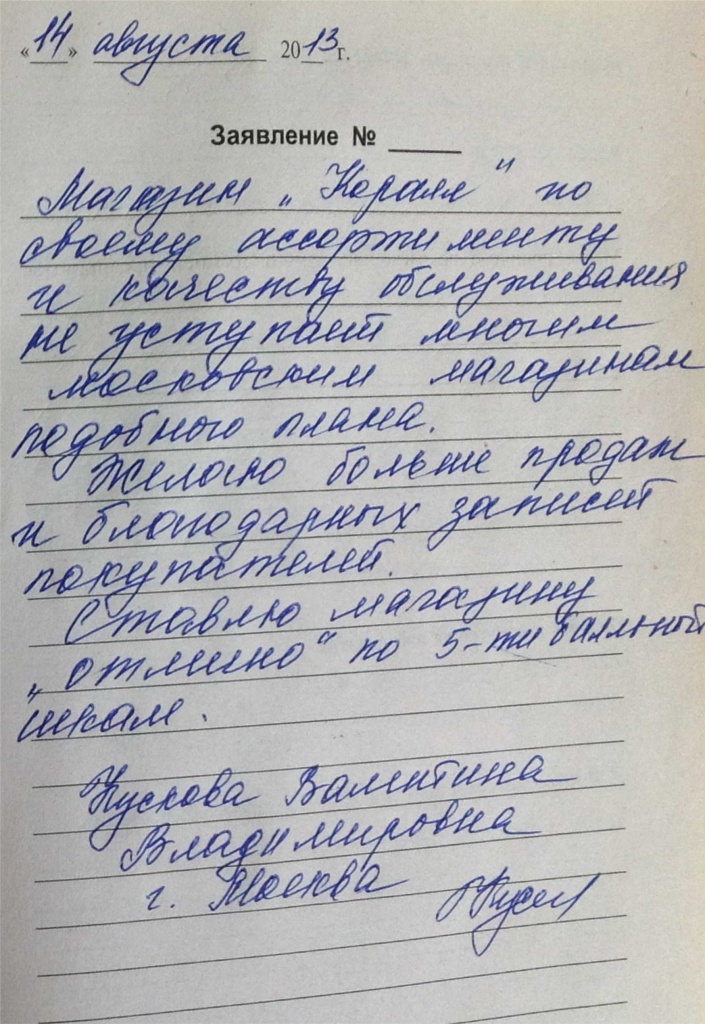 «14» августа 2013 г.
Заявление № ____
Магазин „Коралл" по
своему ассортименту
и качеству обслуживания
не уступает многим
московским магазинам
подобного плана.
Желаю больше продаж
и благодарных записей
покупателей.
Ставлю магазину
„отлично" по 5-ти бальной
шкале.
Кускова Валентина
Владимировна
г. Москва